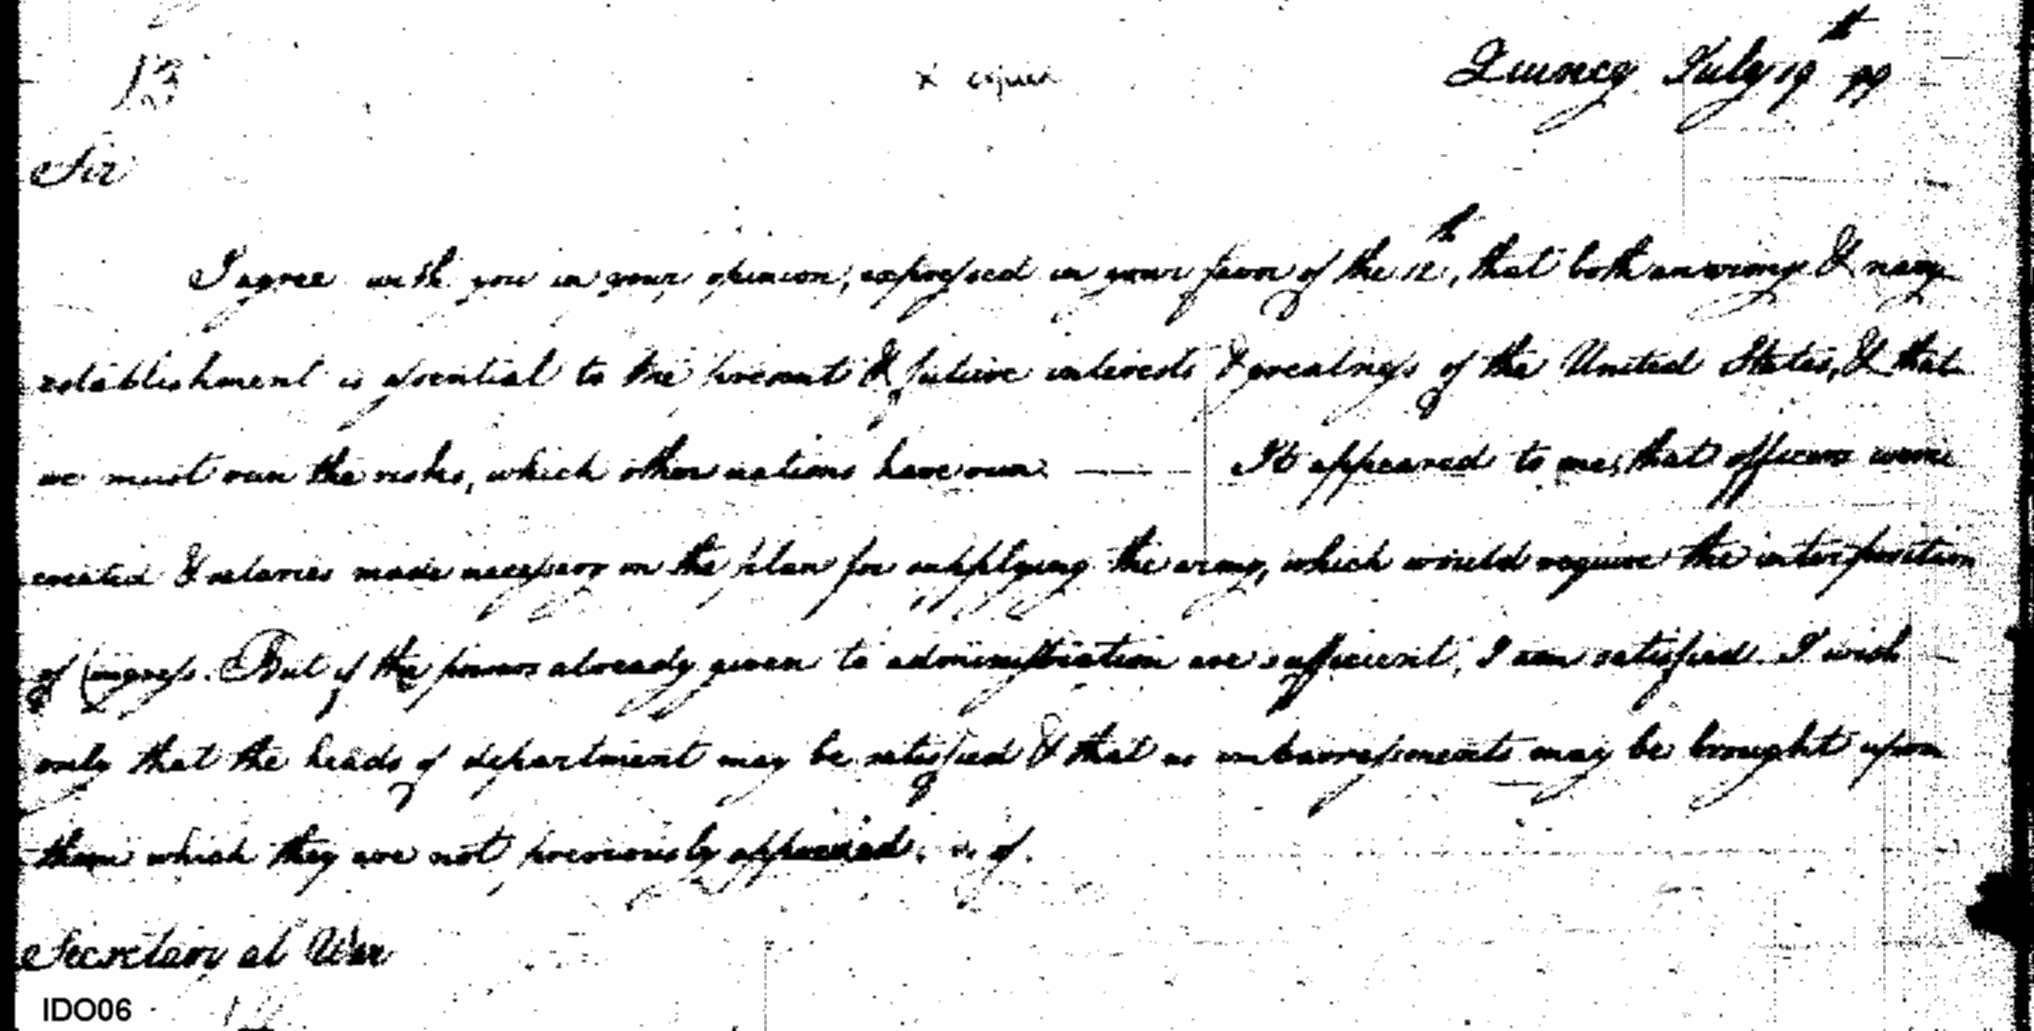 13
x copied
Quincy July 19th 99
Sir
I agree with you in your opinion, expressed in your favor of the 12th, that both an army & navy
establishment is essential to the present & future interests & greatness of the United States, & that
we must run the risks, which other nations have run. —— It appeared to me, that officers were
created & salaries made necessary on the plan for supplying the army, which would require the interposition
of Congress. But if the powers already given to administration are sufficient, I am satisfied. I wish
only that the heads of department may be satisfied & that no embarrassments may be brought upon
them which they are not previously apprised of.
Secretary at War
IDO06